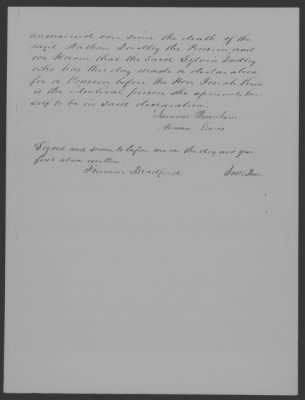 unmarried ever since the death of the
said Nathan Dudley the Pension, and
we Know that the Said Sylvia Dudley
who has this day made a declaration
for a Pension before the Hon Josiah
is the identical person she represents her
self to be in said declaration.
Davis
Signed and sworn to before me on the day and year
first above written.
Freeman Bradford